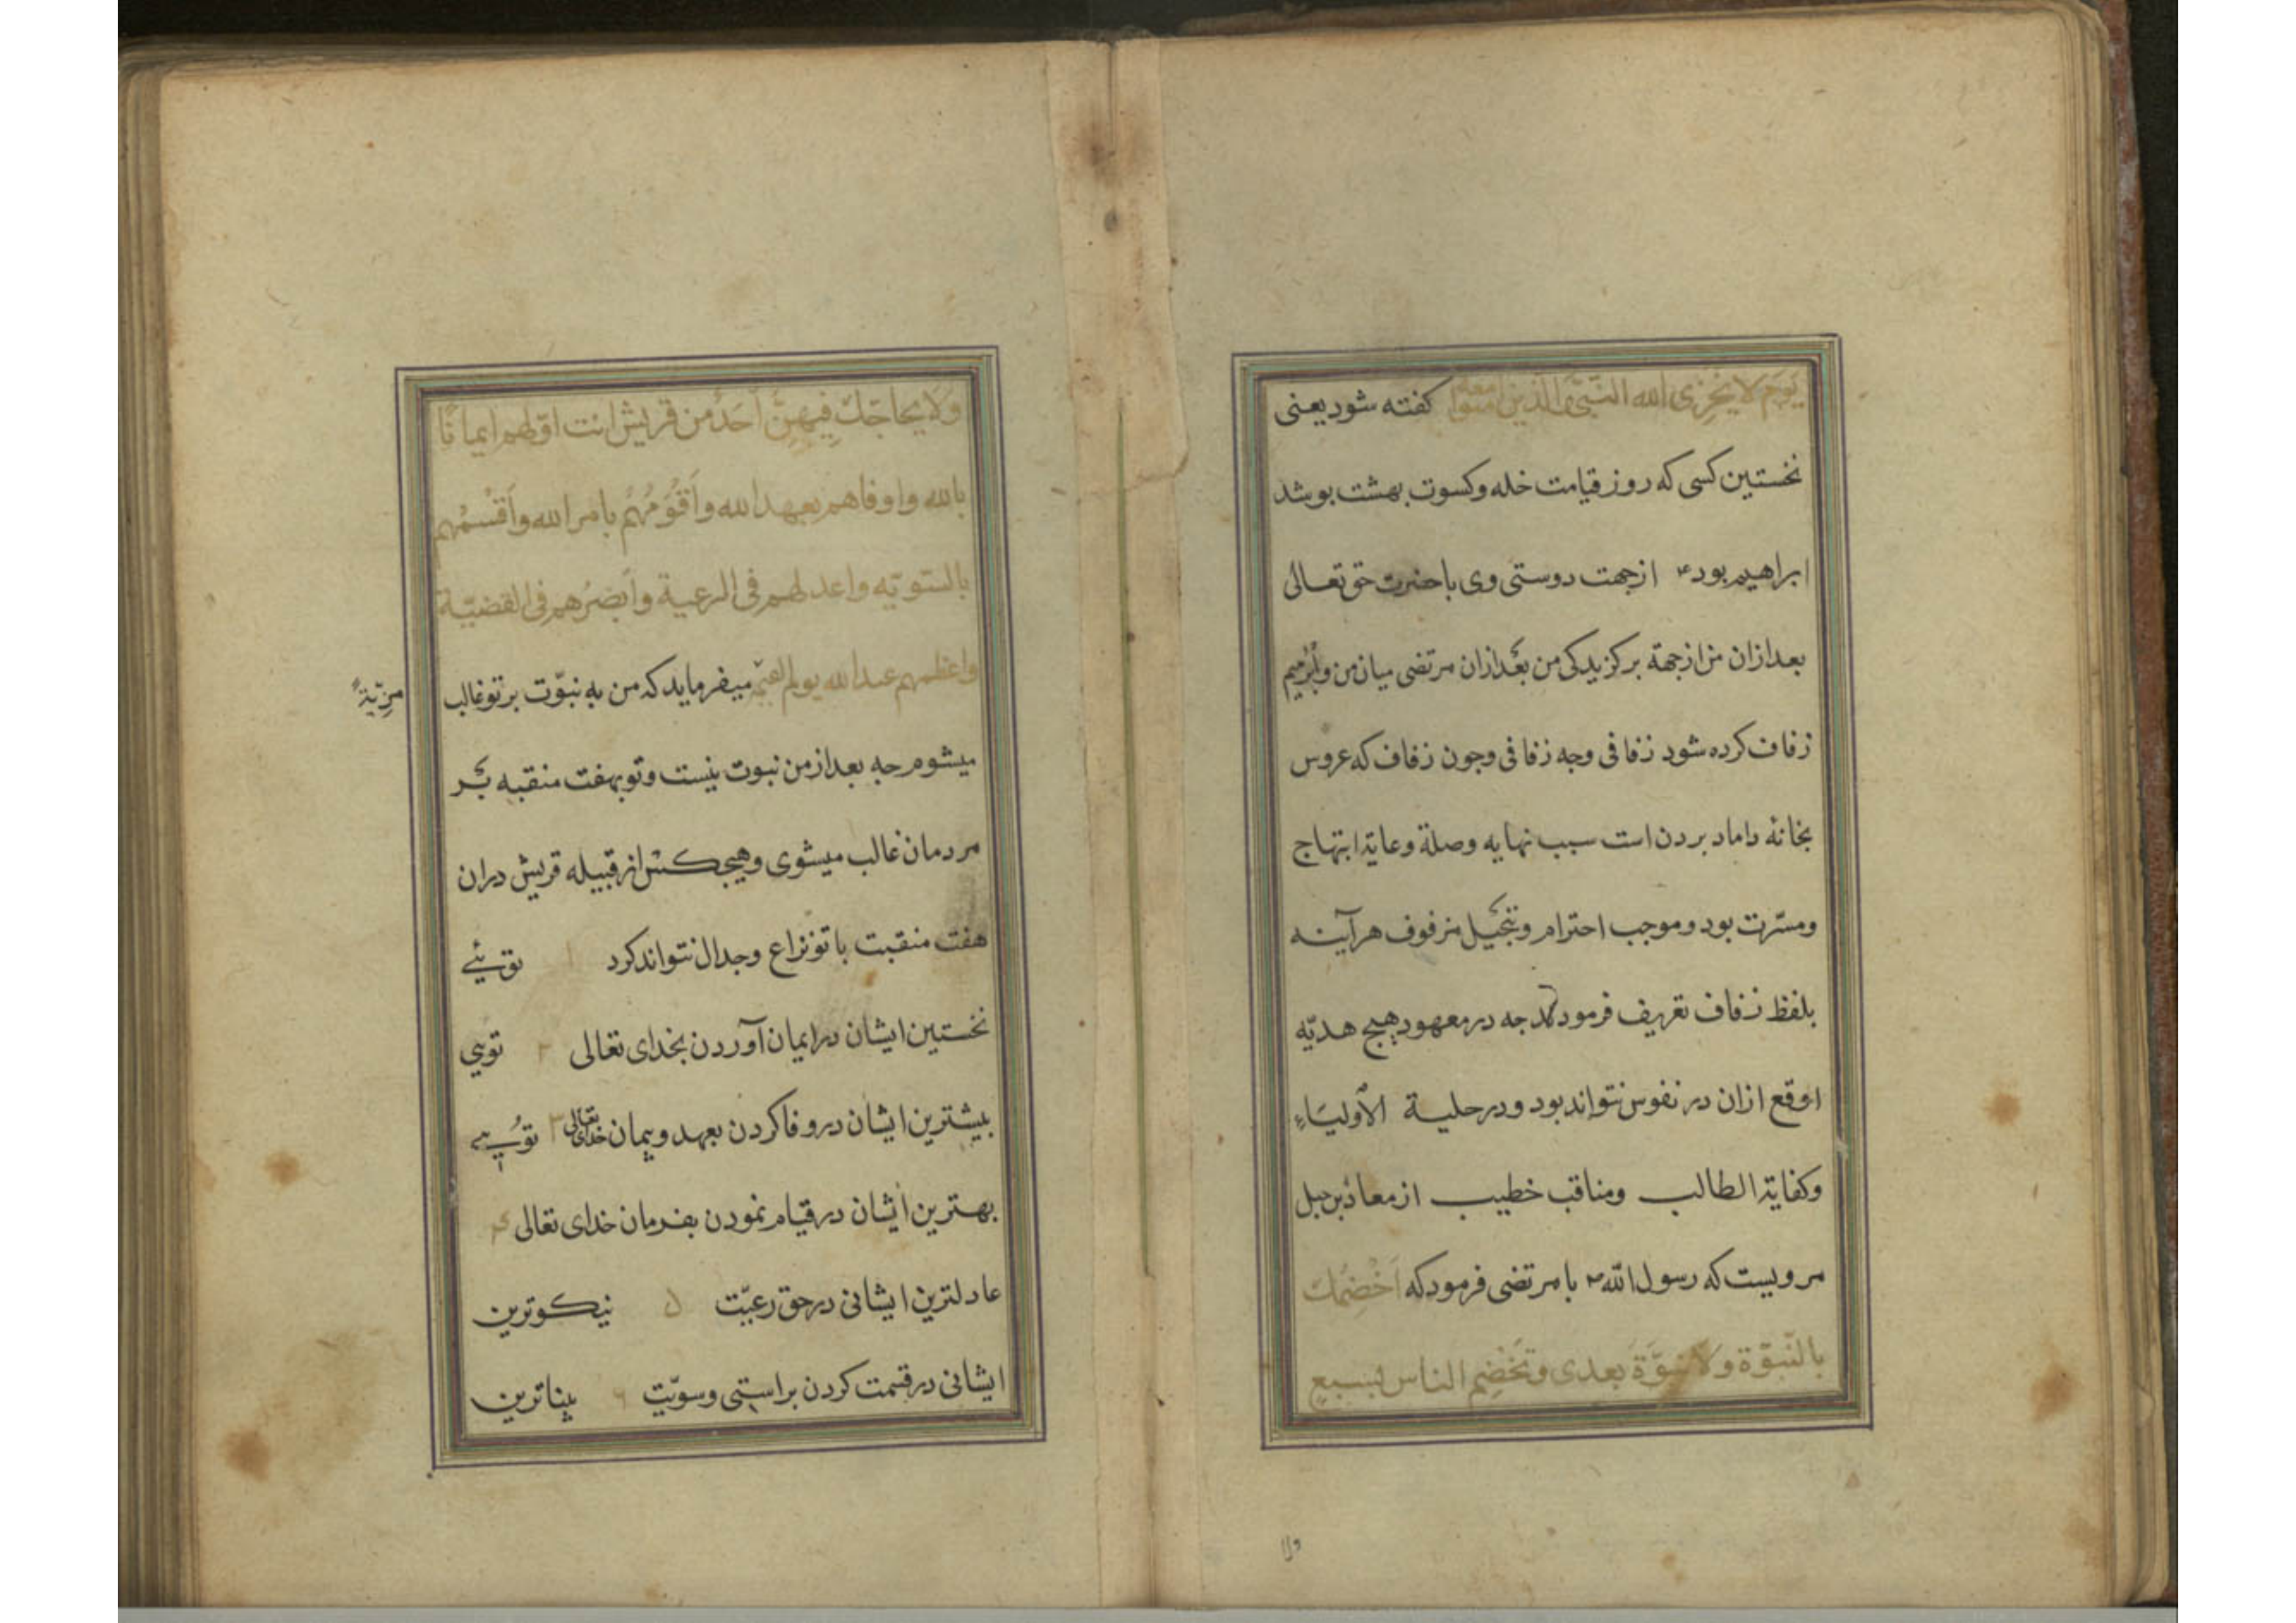 یَومَ لا یُخزِی الله النَّبیَّ والذین امنوا معه کفته شود یعنی
نخستین کسی که روز قیامت خله وکسوت بهشت بوشد
ابراهیم بود ۴ ازجهت دوستی وی با حضرت حق تعالی
بعد ازان من ازجهة برکزیدکی من بعد ازان مرتضی میان من وابرهیم
زفاف کرده شود زفافی وجه زفافی وجون زفاف که عروس
بخانه داماد بردن است سبب نهایه وصلة وعایة ابتهاج
ومسّرت بود وموجب احترام وتبجیل مزفوف هرآینه
بلفظ زفاف تعریف فرمود که جه در معهود هیج هدیّه
اوقع ازان در نفوس نتواند بود ودرحلیة الأولیَاءِ
وکفایة الطالب ومناقب خطیب از معاذ بن جبل
مرویست که رسول الله ۳ با مرتضی فرمود که اَخْصِمُکَ
بالنّبوّة ولا نبوّةَ بعدی وتَخْصِم الناس بسبعٍ
ولا
ولَا یحاجّك فِیهِنَّ اَحَدٌ من قریش انت اوّلهم ایمانًا
بالله واوفاهم بعهد الله واَقْوَمُهُم بامر الله واَقْسَمُهم
بالسّویّه واعدلهم فی الرعیة واَبصَرُهم فی القضیّة
واعظمهم عند الله یوم القیمة میفرماید که من به نبوّت برتو غالب
مزیّةً
میشوم جه بعد از من نبوت نیست وتو بهفت منقبه بر
مردمان غالب میشوی وهیجکس از قبیله قریش دران
هفت منقبت با تو نزاع وجدال نتواند کرد ۱ توئی
نخستین ایشان در ایمان آوردن بخدای تعالی ۲ تویی
بیشترین ایشان در وفا کردن بعهد وپیمان خدای تعالی ۳ تویی
بهترین ایشان در قیام نمودن بفرمان خدای تعالی ۴
عادلترین ایشانی در حق رعیّت ۵ نیکوترین
ایشانی در قسمت کردن براستی وسویّت ۶ بیناترین